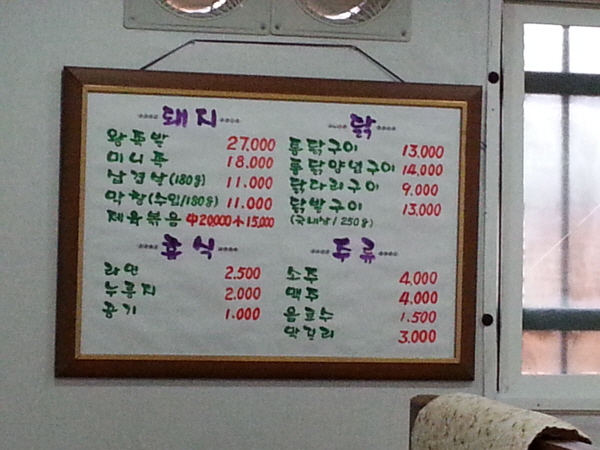 돼지
왕족발 27,000
미니족 18,000
삼겹살 (180g) 11.000
막창(수입/180g) 11.000
제육볶음 中20,000 小15,000
닭
통닭구이 13,000
통닭양념구이 14,000
닭다리구이 9.000
닭발구이 13,000
(국내산/250g)
후식
라면 2.500
누룽지 2.000
공기 1.000
주류
소주 4,000
맥주 4,000
음료수 1.500
막걸리 3.000